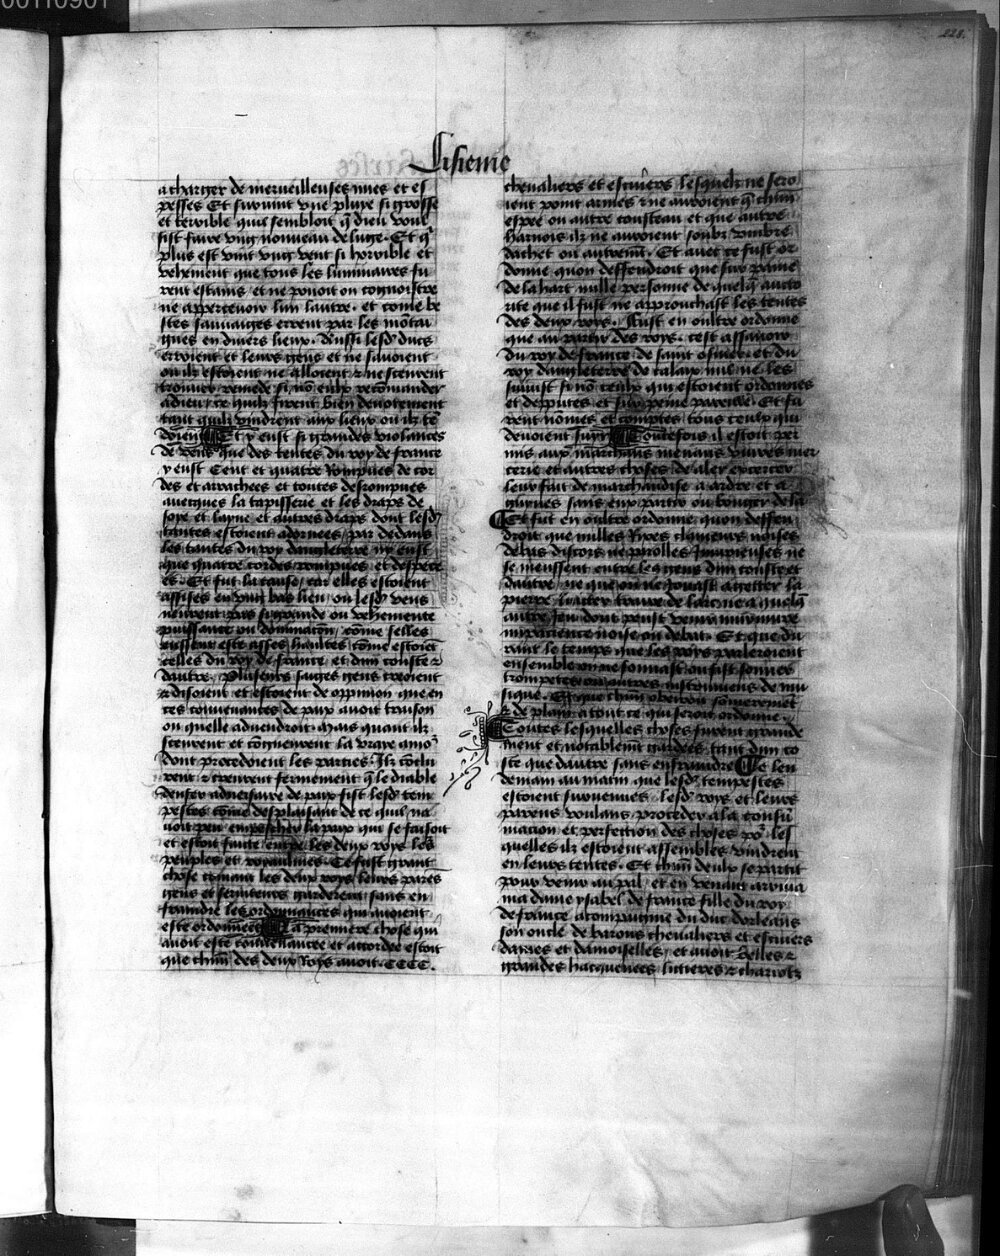 00110901
228.
Lisieme
a charger de merueilleuses nues et es
pesses Et suruint vne pluye si grosse
et terrible quil sembloit q̄ dieu voul
sist faire vng nouueau deluge. Et q̄
plus est vint vng vent si horrible et
vehement que tous les luminaires fu
rent estains et ne pouoit on cognoistre
ne apperceuoir lun lautre. et come be
stes sauuaiges errent par les mōtai
gnes en diuers lieux. Aussi lesd ducs
erroient et leurs gens et ne sauoient
ou ilz estoient ne alloient et ne sceurent
trouuer remede si nō eulx recōmander
a dieu ce quilz firent bien deuotement
tant quilz vindrent aux lieux ou ilz te
doient Et y eust si grandes violances
de vens que des tentes du roy de france
y eust Cent et quatre Rompues de cor
des et arrachees et toutes desrompues
auecques la tapisserie et les draps de
soye et layne et autres draps dont lesd
tantes estoient adornees par dedans
les tantes du roy dangleterre ny eust
que quatre cordes rompues et despece
es. Et fut la cause car elles estoient
assises en vng bas lieu ou lesd vens
neurent pas si grande ou vehemente
puissance ou dominacōn cōme selles
eussent este asses haultes cōme estoiēt
celles du roy de france et dun couste et
dautre. Plusieurs saiges gens creoient
et disoient et estoient de oppinion que en
ces conuenances de paix auoit traison
ou quelle aduendroit. Mais quant ilz
sceurent et cōgneurent la vraye amō
dont procedoient les parties. Ilz cōclu
rent et creurent fermement q̄ le diable
denfer aduersaire de paix fist lesd tem
pestes cōme desplaisant de ce quil na
uoit peu empescher la paix qui se faisoit
et estoit faite entre les deux roys les
peuples et royaulmes. Ce fust grant
chose cōmant les deux roys leurs pares
gens et seruiteurs garderent sans en
fraindre les ordonnances qui auoient
este ordonnees La premiere chose qui
auoit este conuenancee et accordee estoit
que chūn des deux Roys auoit CCCC.
cheualiers et escuiers lesquelz ne sero
ient point armes et ne auroient q̄ chūn
espee ou autre cousteau et que autre
harnois ilz ne auroient soubz vmbre
dachet ou autremt. Et auec ce fust or
donne quon deffendroit que sur paine
de la hart nulle personne de quelq̄ aucto
rite que il fust ne approuchast les tentes
des deux roys. Fust en oultre ordonne
que au partir des roys. cest assauoir
du roy de france de saint omer et du
roy dangleterre de calaix nul ne les
suiuist si nō ceulx qui estoient ordonnes
et desputes et sur peine pareille. Et fu
rent nōmes et comptes tous ceulx qui
deuoient suyr Toutesfois il estoit per
mis aux marchans menans viures mer
cerie et autres choses de aler exercer
leur fait de marchandise a ardre et a
guynes sans eulx partir ou bouger de la
Et fut en oultre ordonne quon deffen
droit que nulles Rixes clameurs noises
debas discors ne parolles Iniurieuses ne
se meussent entre les gens dun couste et
dautre ne que on ne Iouast a getter la
pierre luicter traire de larc ne a quelq̄
autre Ieu dont peust venir murmure
impacience noise ou debat. Et que du
rant le temps que les roys parleroient
ensemble on ne sonnast ou fist sonner
trompetes ou autres instrumens de mu
sique. Et que chūn obeiroit sōmeremēt
et de plain a tout ce qui seroit ordonne.
Toutes lesquelles choses furent grande
ment et notablemt gardees tant dun co
ste que dautre sans enfraindre Le len
demain au matin que lesd tempestes
estoient suruenues. lesd roys et leurs
parens voulans proceder a la consū
macion et perfection des choses pō les
quelles ilz estoient assembles vindrent
en leurs tentes. Et chūn deulx se partit
pour venir au pal. et en venant arriua
ma dame ysabel de france fille du roy
de france acompaignie du duc dorleans
son oncle de barons cheualiers et escuiers
dames et damoiselles et auoit belles et
grandes hacquenees litieres et chariotz